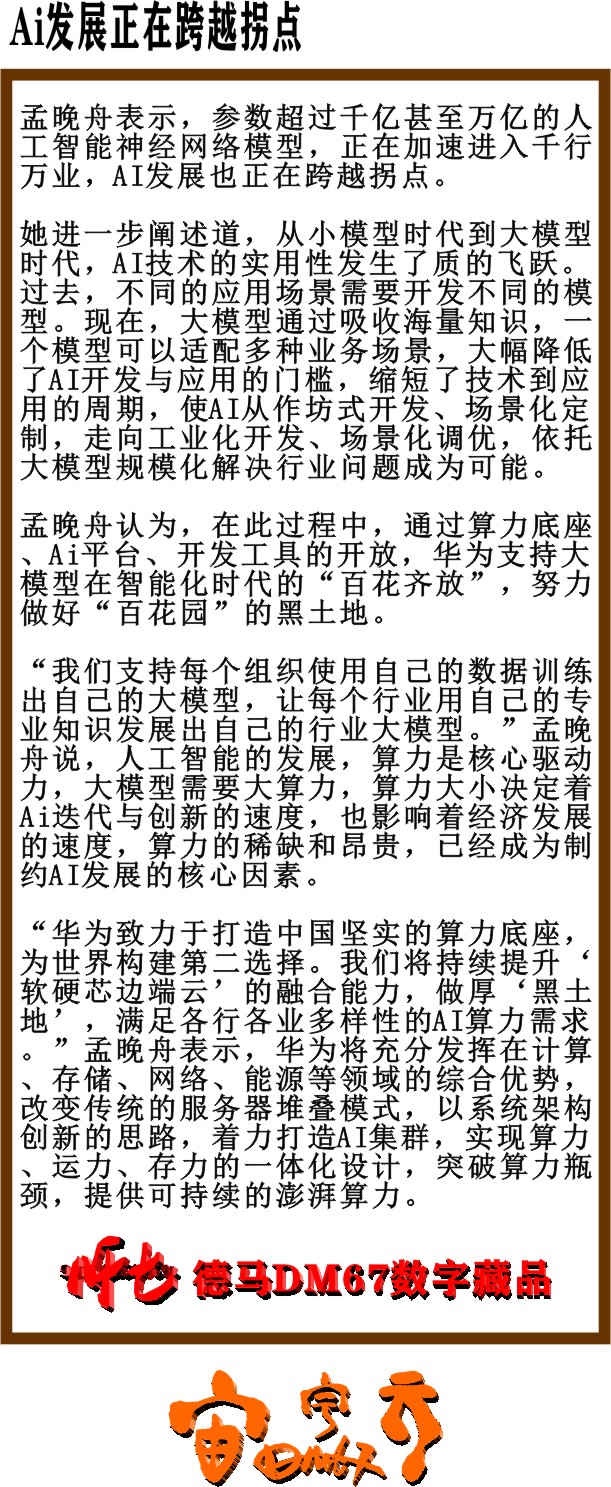 Ai发展正在跨越拐点
孟晚舟表示，参数超过千亿甚至万亿的人
工智能神经网络模型，正在加速进入千行
万业，AI发展也正在跨越拐点。
她进一步阐述道，从小模型时代到大模型
时代，AI技术的实用性发生了质的飞跃。
过去，不同的应用场景需要开发不同的模
型。现在，大模型通过吸收海量知识，一
个模型可以适配多种业务场景，大幅降低
了AI开发与应用的门槛，缩短了技术到应
用的周期，使AI从作坊式开发、场景化定
制，走向工业化开发、场景化调优，依托
大模型规模化解决行业问题成为可能。
孟晚舟认为，在此过程中，通过算力底座
、Ai平台、开发工具的开放，华为支持大
模型在智能化时代的“百花齐放”，努力
做好“百花园”的黑土地。
“我们支持每个组织使用自己的数据训练
出自己的大模型，让每个行业用自己的专
业知识发展出自己的行业大模型。”孟晚
舟说，人工智能的发展，算力是核心驱动
力，大模型需要大算力，算力大小决定着
Ai迭代与创新的速度，也影响着经济发展
的速度，算力的稀缺和昂贵，已经成为制
约AI发展的核心因素。
“华为致力于打造中国坚实的算力底座，
为世界构建第二选择。我们将持续提升‘
软硬芯边端云’的融合能力，做厚‘黑土
地’，满足各行各业多样性的AI算力需求
。”孟晚舟表示，华为将充分发挥在计算
、存储、网络、能源等领域的综合优势，
改变传统的服务器堆叠模式，以系统架构
创新的思路，着力打造AI集群，实现算力
、运力、存力的一体化设计，突破算力瓶
颈，提供可持续的澎湃算力。
德马DM67数字藏品
宇宙DM67